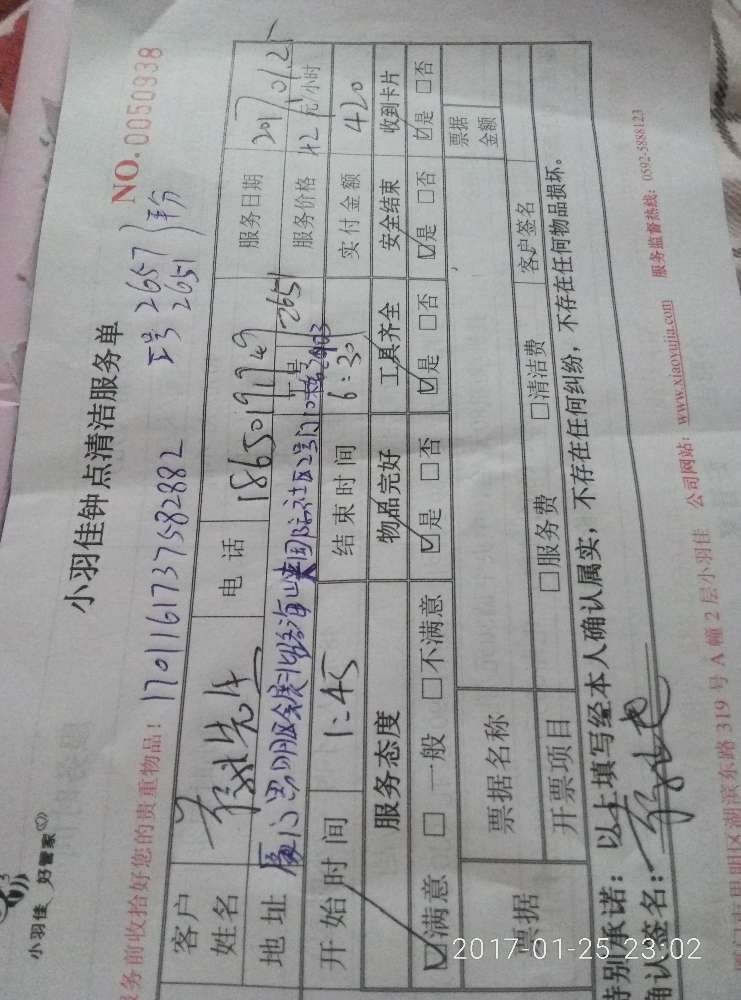 小羽佳 好管家
小羽佳钟点清洁服务单
NO.0050938
服务前收拾好您的贵重物品！ 1701161737582882 工号 2657
2651
客户姓名 先生 电话 18650191749 服务日期 2017 01 25
地址 工号 2651 服务价格 42 元/小时
开始时间 1:45 结束时间 6:30 实付金额 420
服务态度 物品完好 工具齐全 安全结束 收到卡片
☑满意 □一般 □不满意 ☑是 □否 ☑是 □否 ☑是 □否 ☑是 □否
票据 票据名称 票据金额
开票项目 □服务费 □清洁费 客户签名
特别承诺：以上填写经本人确认属实，不存在任何纠纷，不存在任何物品损坏。
确认签名：
厦门市思明区湖滨东路 319 号 A 幢 2 层小羽佳 公司网站：www.xiaoyujia.com 服务监督热线：0592-5888123
2017-01-25 23:02